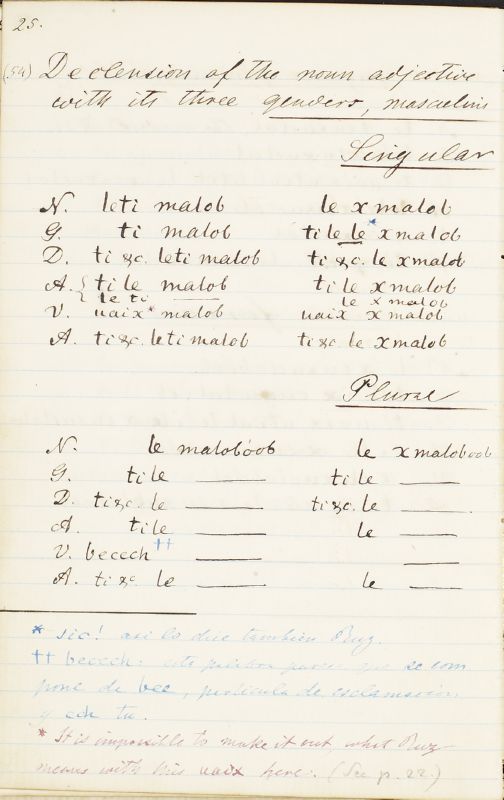 25.
(54) Declension of the noun adjective
with its three genders, masculine
Singular
N. leti malob le x malob
G. ti malob ti le le* x malob
D. ti &c. leti malob ti &c. le x malob
A. { ti le malob ti le x malob
le ti —— le x malob
V. uaix* malob uaix x malob
A. ti &c. leti malob ti &c. le x malob
Plural
N. le maloboob le x maloboob
G. ti le —— ti le ——
D. ti &c. le —— ti &c. le ——
A. ti le —— le ——
V. becech†† —— ——
A. ti &c. le —— le ——
* sic! asi lo dice tambien Ruz.
†† becech: esta palabra parece que se com
pone de bee, particula de esclamacion,
y ech tu.
* It is impossible to make it out, what Ruz
means with his uaix here. (See p. 22.)